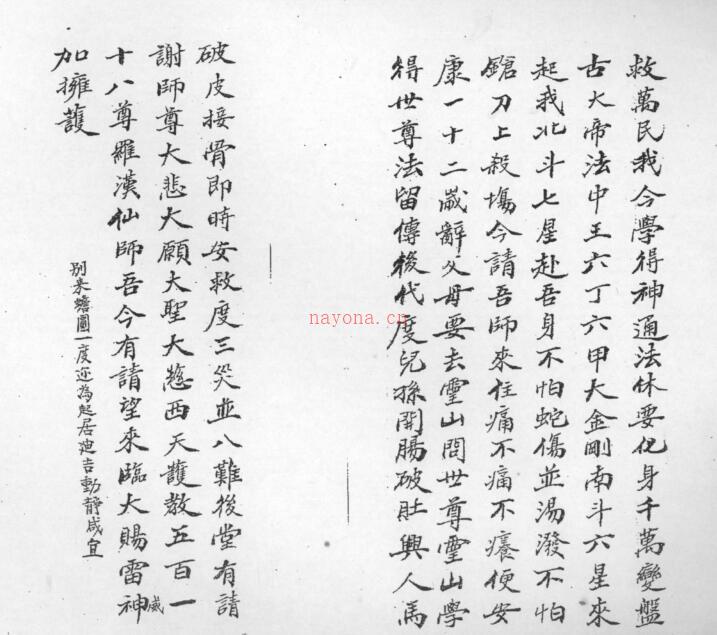 救萬民我今學得神通法休要化身千萬變盤
古大帝法中王六丁六甲大金剛南斗六星來
起我北斗七星赴吾身不怕蛇傷並湯潑不怕
鎗刀上殺塲今請吾師來住痛不痛不癢便安
康一十二歲辭父母要去靈山問世尊靈山學
得世尊法留傳後代度兒孫開腸破肚興人馬
破皮接骨即時安救度三災並八難後堂有請
謝師尊大悲大願大聖大慈西天護教五百一
十八尊羅漢仙師吾今有請望來臨大賜雷神威
加擁護
別來蟾圓一度近為起居迪吉動靜咸宜
nayona.cn